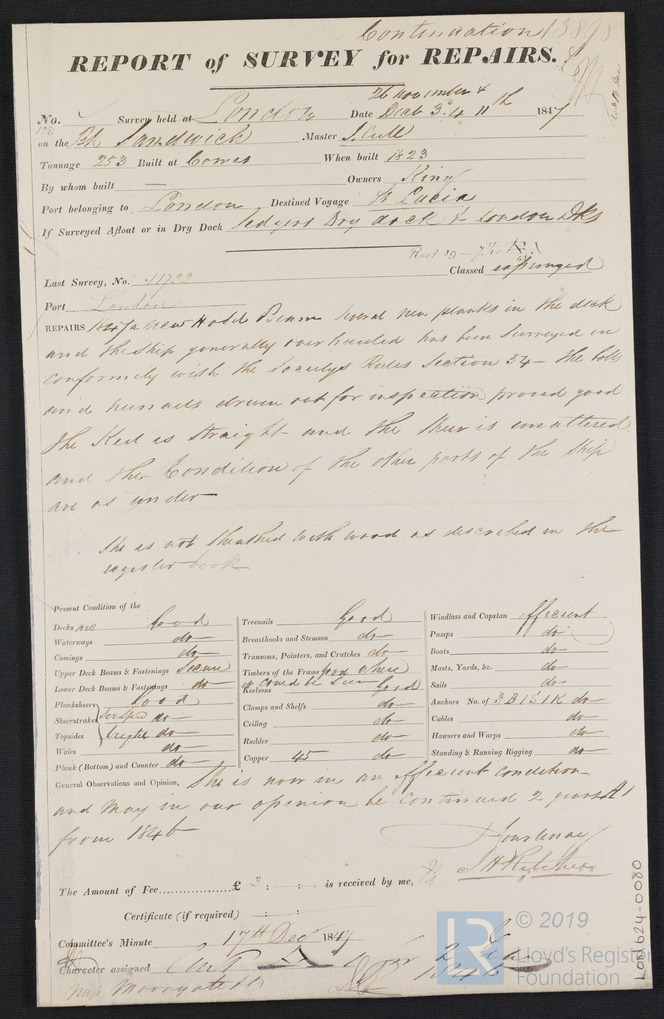 Continuation 13898
REPORT of SURVEY for REPAIRS.
26 November &
No. Survey held at London Date Decr 3d 4 11th 1847
on the Bk Sandwich Master J. Cull
Tonnage 253 Built at Cowes When built 1823
By whom built — Owners King
Port belonging to London Destined Voyage St Lucia
If Surveyed Afloat or in Dry Dock Sedgers Dry dock & London Dks
Last Survey, No. 11722 Classed expunged
Port London
REPAIRS new Hold Beam Several new planks in the deck
and the ship generally overhauled has been Surveyed in
conformity with the Societys Rules Section 54 – the bolts
and trenails driven out for inspection proved good
the Keel is straight and the is unaltered
and the Condition of the other parts of the Ship
are as under
She is not sheathed with wood as described in the
register book
Present Condition of the
Decks Good
Waterways do
Comings do
Upper Deck Beams & Fastenings Secure
Lower Deck Beams & Fastenings do
Planksheers Good
Sheerstrakes Scraped do
Topsides bright do
Wales do
Plank (Bottom) and Counter do
Treenails Good
Breasthooks and Stemson do
Transoms, Pointers, and Crutches do
Timbers of the Frame good where
Keelsons it could be seen Good
Clamps and Shelfs do
Ceiling do
Rudder do
Copper 45 do
Windlass and Capstan Efficient
Pumps do
Boats do
Masts, Yards, &c. do
Sails do
Anchors No. of 3 B 1 S 1 K do
Cables do
Hawsers and Warps do
Standing & Running Rigging do
General Observations and Opinion, She is now in an efficient condition
and may in our opinion be Continued 2 years A1
from 1846
J Courtenay
J H Ritchie
The Amount of Fee.................. £ 3 : : is received by me,
Certificate (if required) : :
Committee's Minute 17th Decr 1847
Character assigned Cont A 1 for 2 Yrs
1846
LON624-0080
LR
© 2019
Lloyd's Register
Foundation